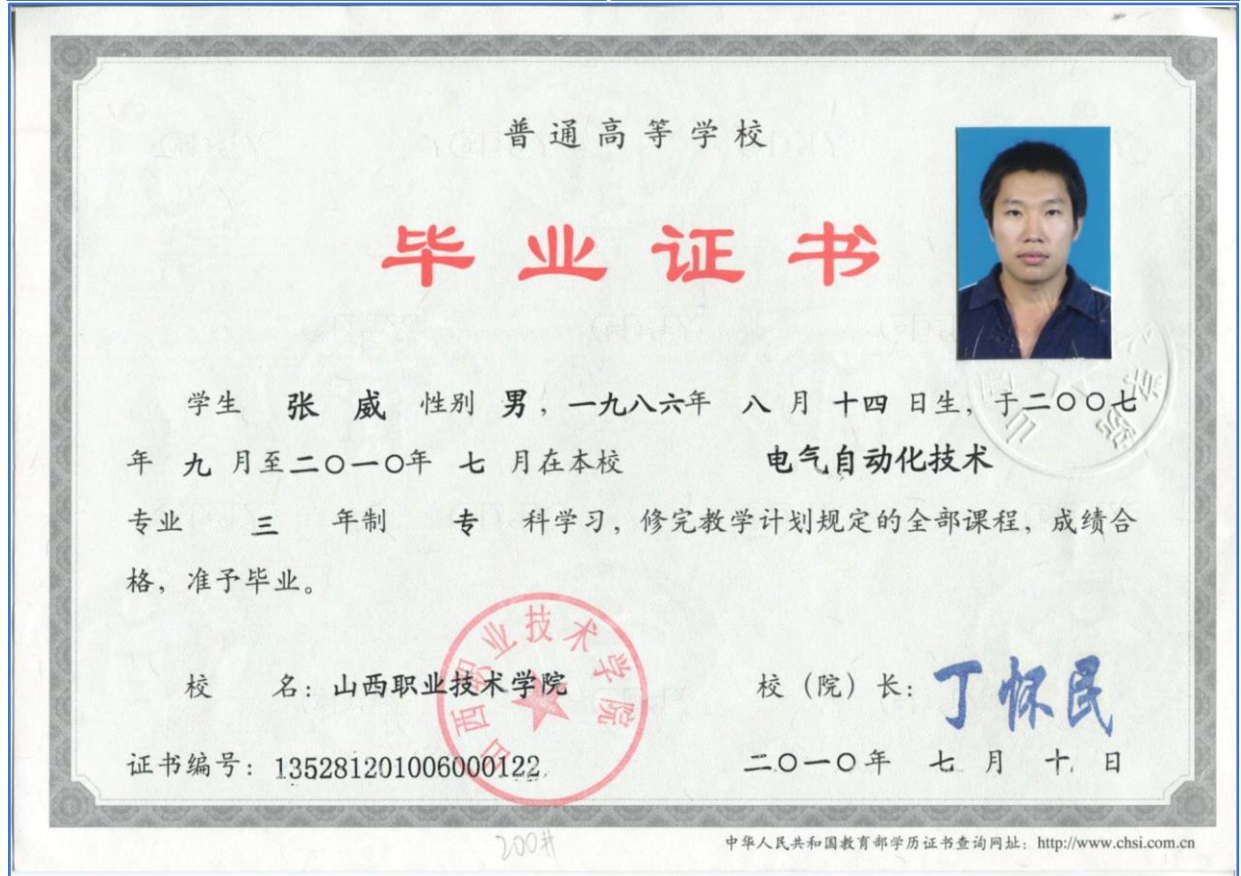 普通高等学校
毕业证书
学生 张威 性别 男，一九八六年 八 月 十四 日生，于二〇〇七
年 九 月至二〇一〇年 七 月在本校 电气自动化技术
专业 三 年制 专 科学习，修完教学计划规定的全部课程，成绩合
格，准予毕业。
山西职业技术学院
校 名：山西职业技术学院 校（院）长：丁怀民
证书编号：135281201006000122 二〇一〇年 七 月 十 日
200#
中华人民共和国教育部学历证书查询网址：http://www.chsi.com.cn